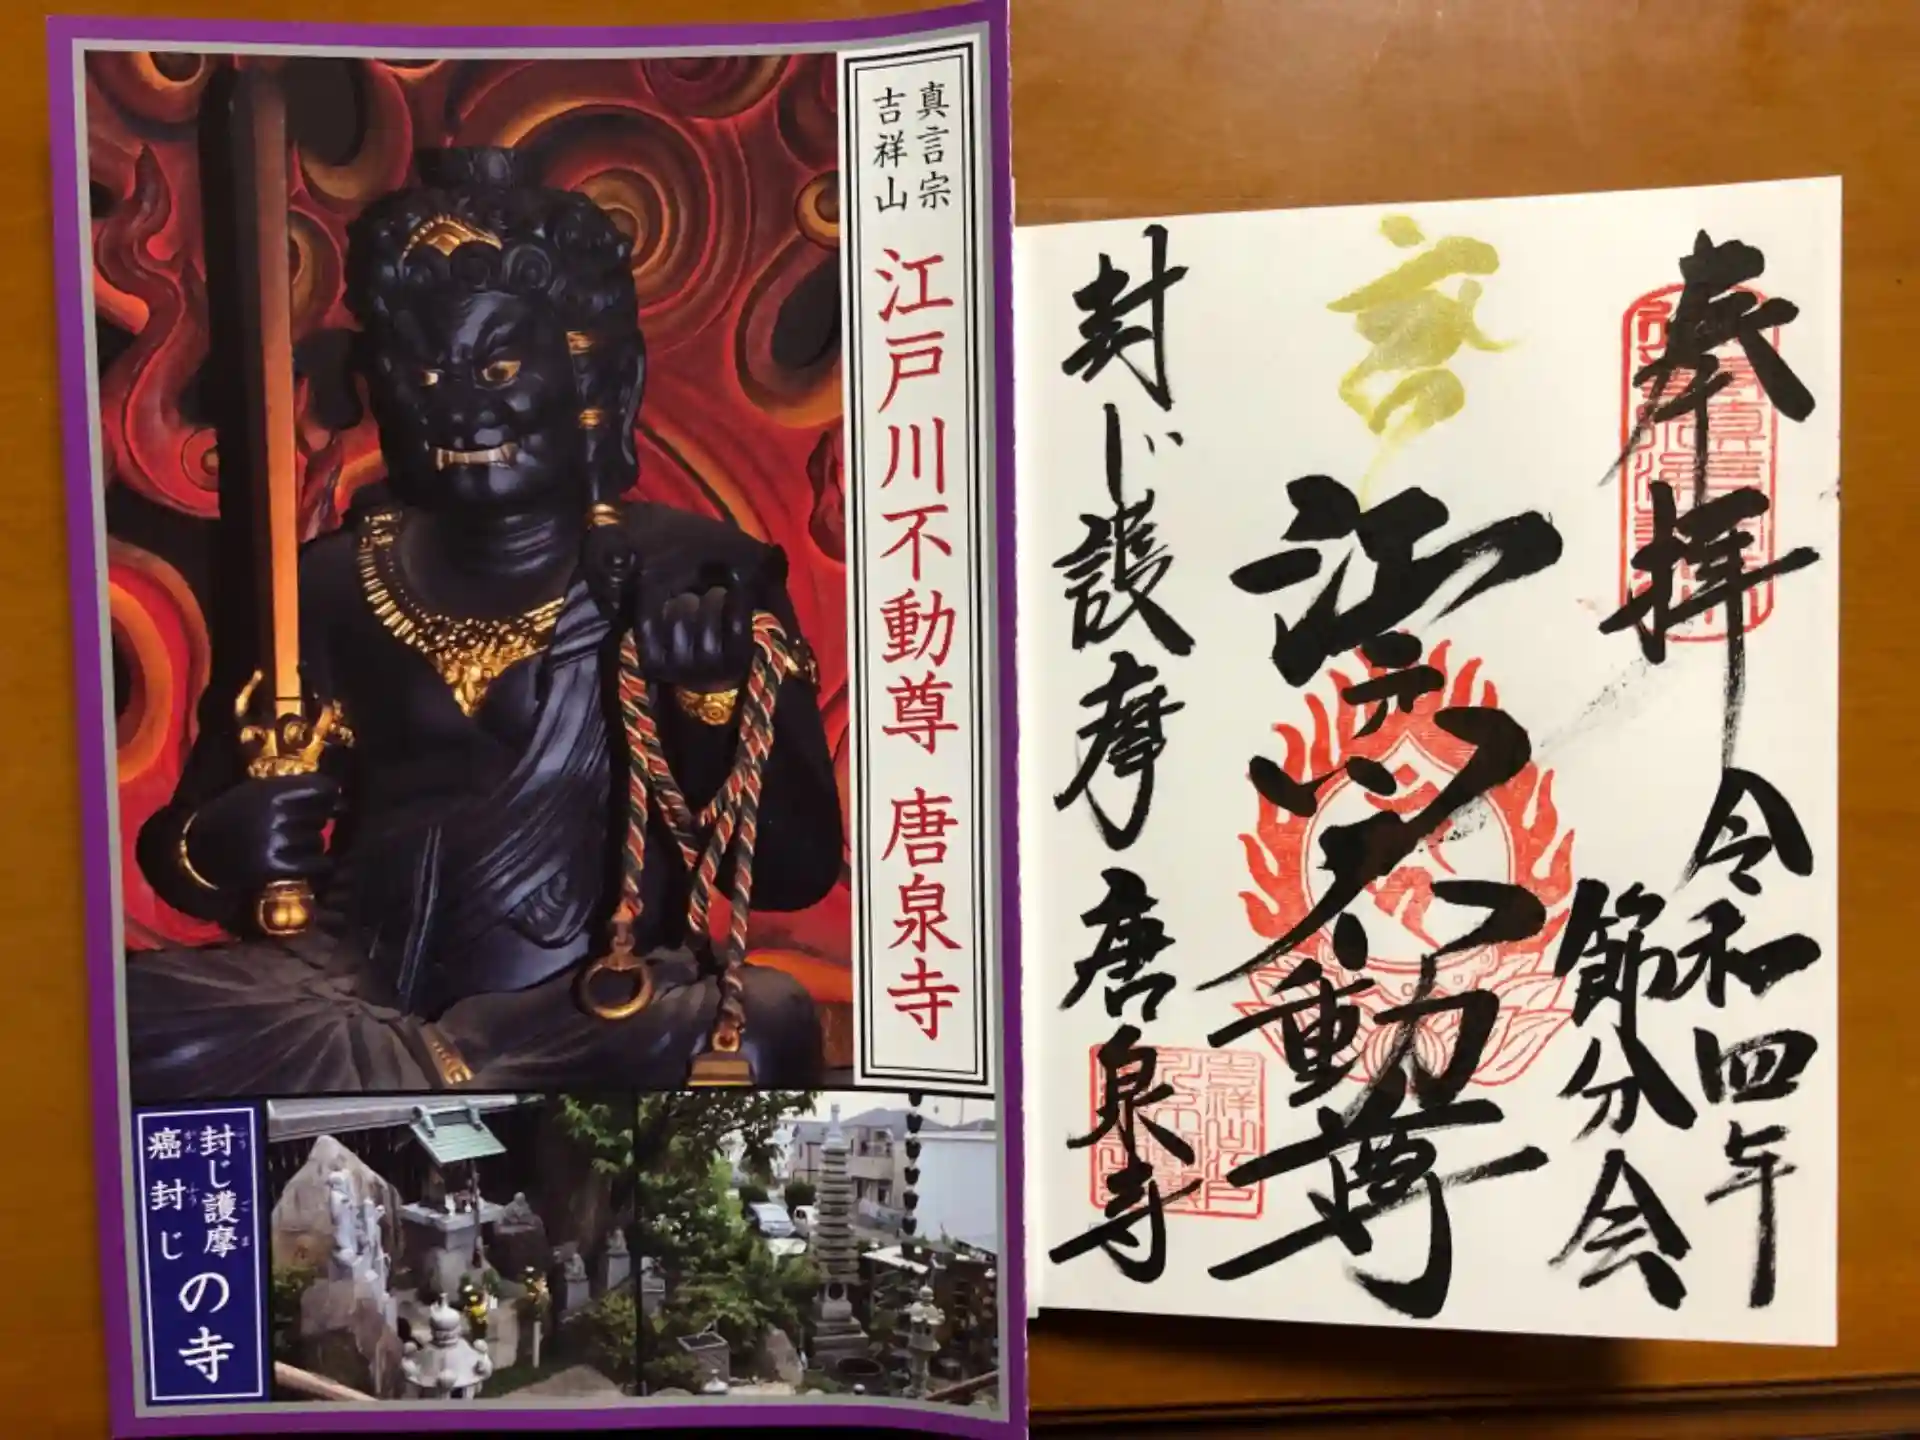 真言宗
吉祥山
江戸川不動尊 唐泉寺
封じ護摩
癌封じ
の寺
ふう
ご
ま
がん
ふう
奉拝
令和四年
節分会
江戸川不動尊
封じ護摩 唐泉寺